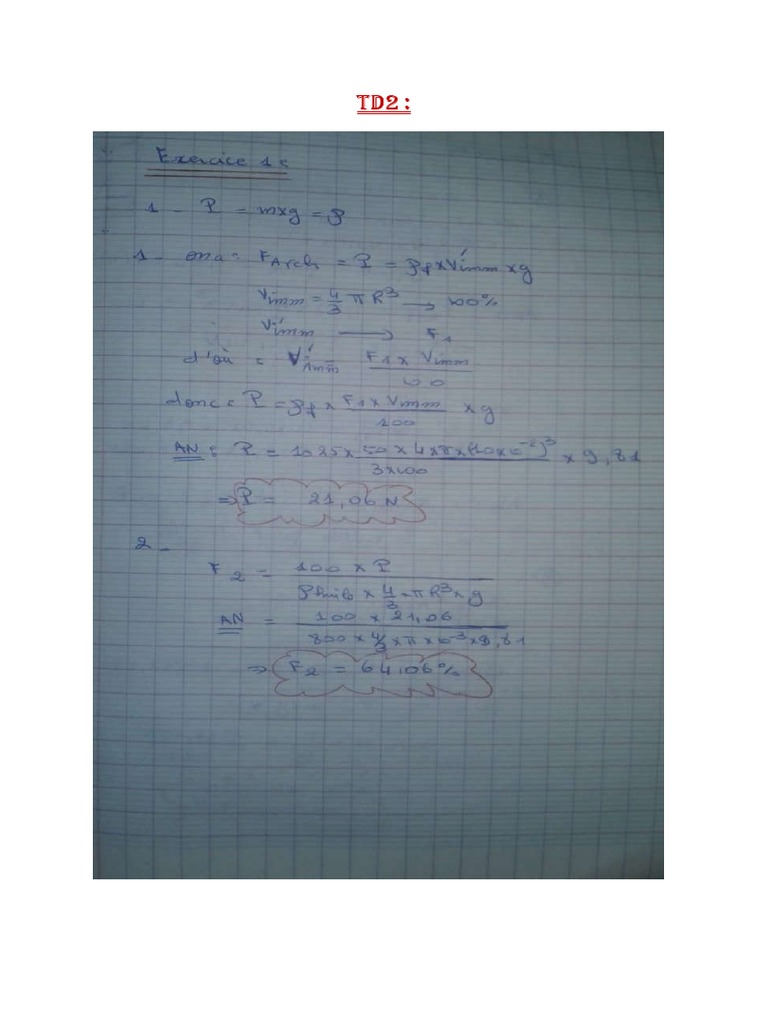 TD2:
Exercice 1:
1 - P = mxg = ρ
1 - ona: FArch = P = ρf x V'imm x g
Vimm = 4/3 π R³ → 100%
V'imm → F1
d'où : V'imm = F1 x Vimm / 100
donc: P = ρf x F1 x Vimm / 100 x g
AN : P = 1025 x 50 x 4 x π x (10 x 10⁻²)³ / 3x100 x 9,81
⇒ P = 21,06 N
2 -
F2 = 100 x P / ρhuile x 4/3 x π R³ x g
AN = 100 x 21,06 / 800 x 4/3 x π x 10⁻³ x 9,81
⇒ F2 = 64,06%